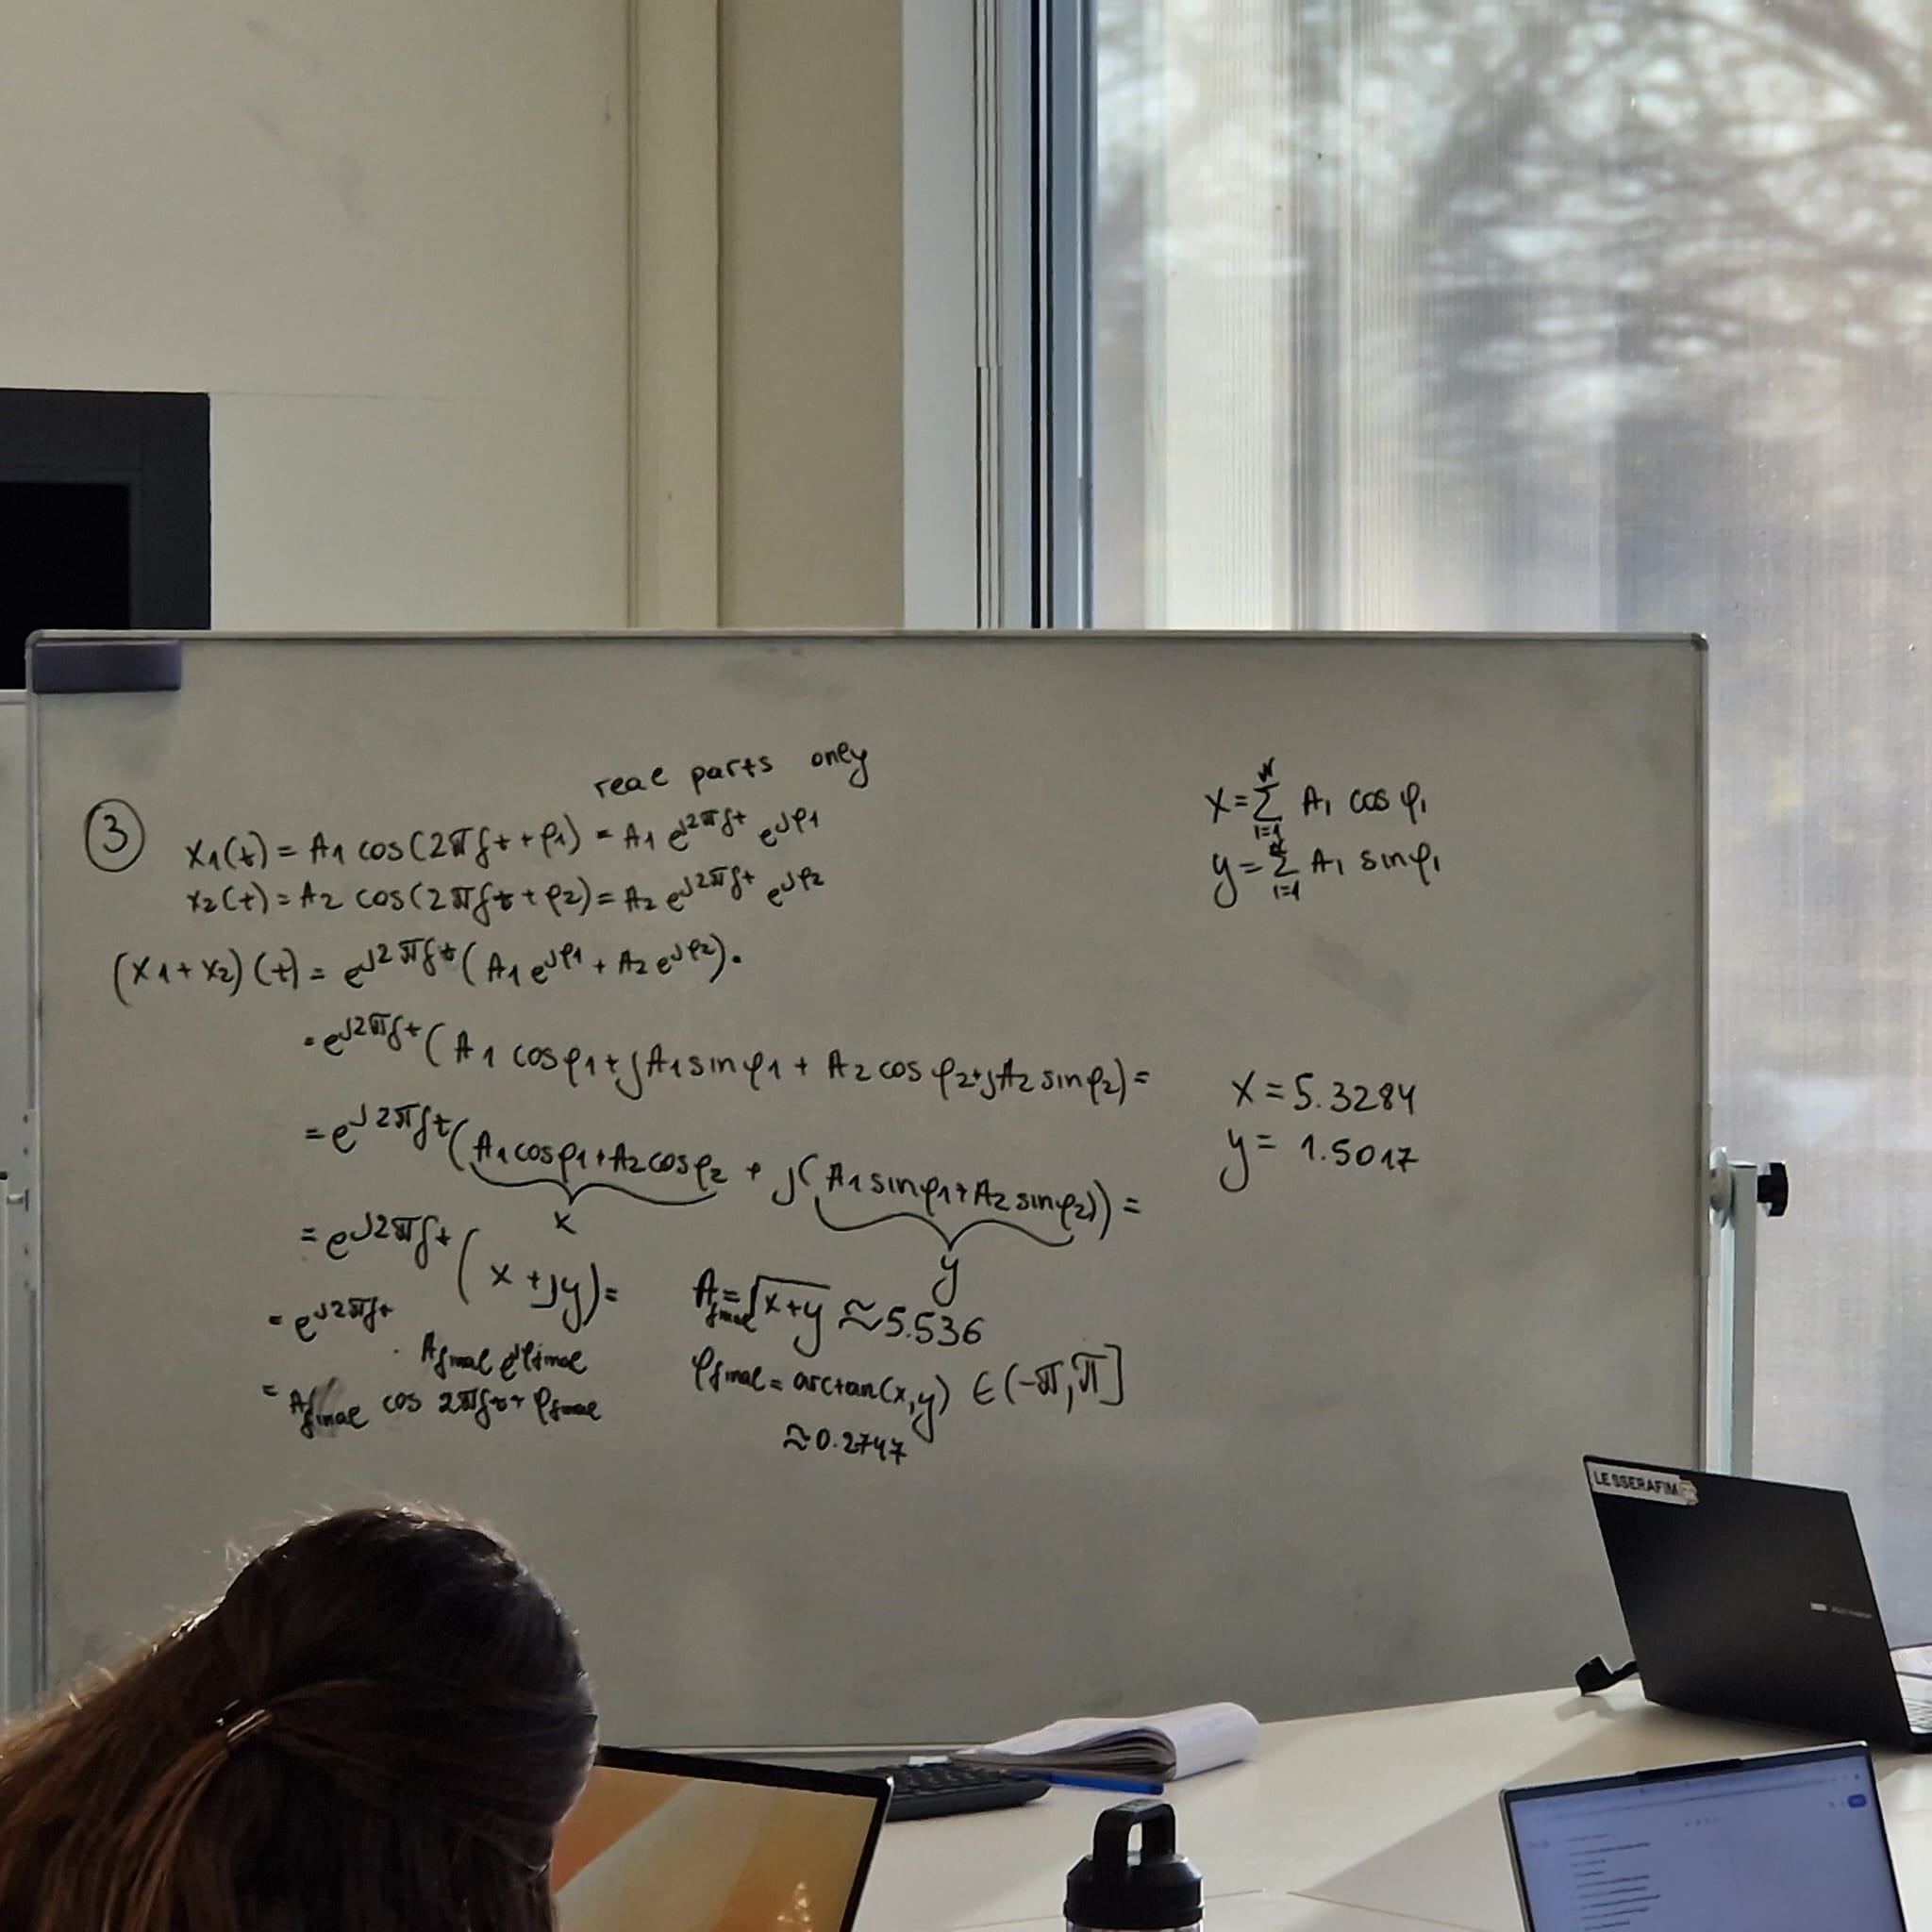 real parts only
③ x₁(t) = A₁ cos(2πft + φ₁) = A₁ e^{j2πft} e^{jφ₁}
x₂(t) = A₂ cos(2πft + φ₂) = A₂ e^{j2πft} e^{jφ₂}
(x₁ + x₂)(t) = e^{j2πft} (A₁ e^{jφ₁} + A₂ e^{jφ₂}).
= e^{j2πft} (A₁ cos φ₁ + jA₁ sin φ₁ + A₂ cos φ₂ + jA₂ sin φ₂) =
= e^{j2πft} (A₁ cos φ₁ + A₂ cos φ₂ + j(A₁ sin φ₁ + A₂ sin φ₂)) =
x
y
= e^{j2πft} (x + jy) =
= e^{j2πft} · A_final e^{jφ_final}
= A_final cos 2πft + φ_final
A_final = √(x+y) ≈ 5.536
φ_final = arctan(x,y) ∈ (-π, π]
≈ 0.2747
x = Σ_{i=1}^{N} A_i cos φ_i
y = Σ_{i=1}^{N} A_i sin φ_i
x = 5.3284
y = 1.5017
LE SSERAFIM